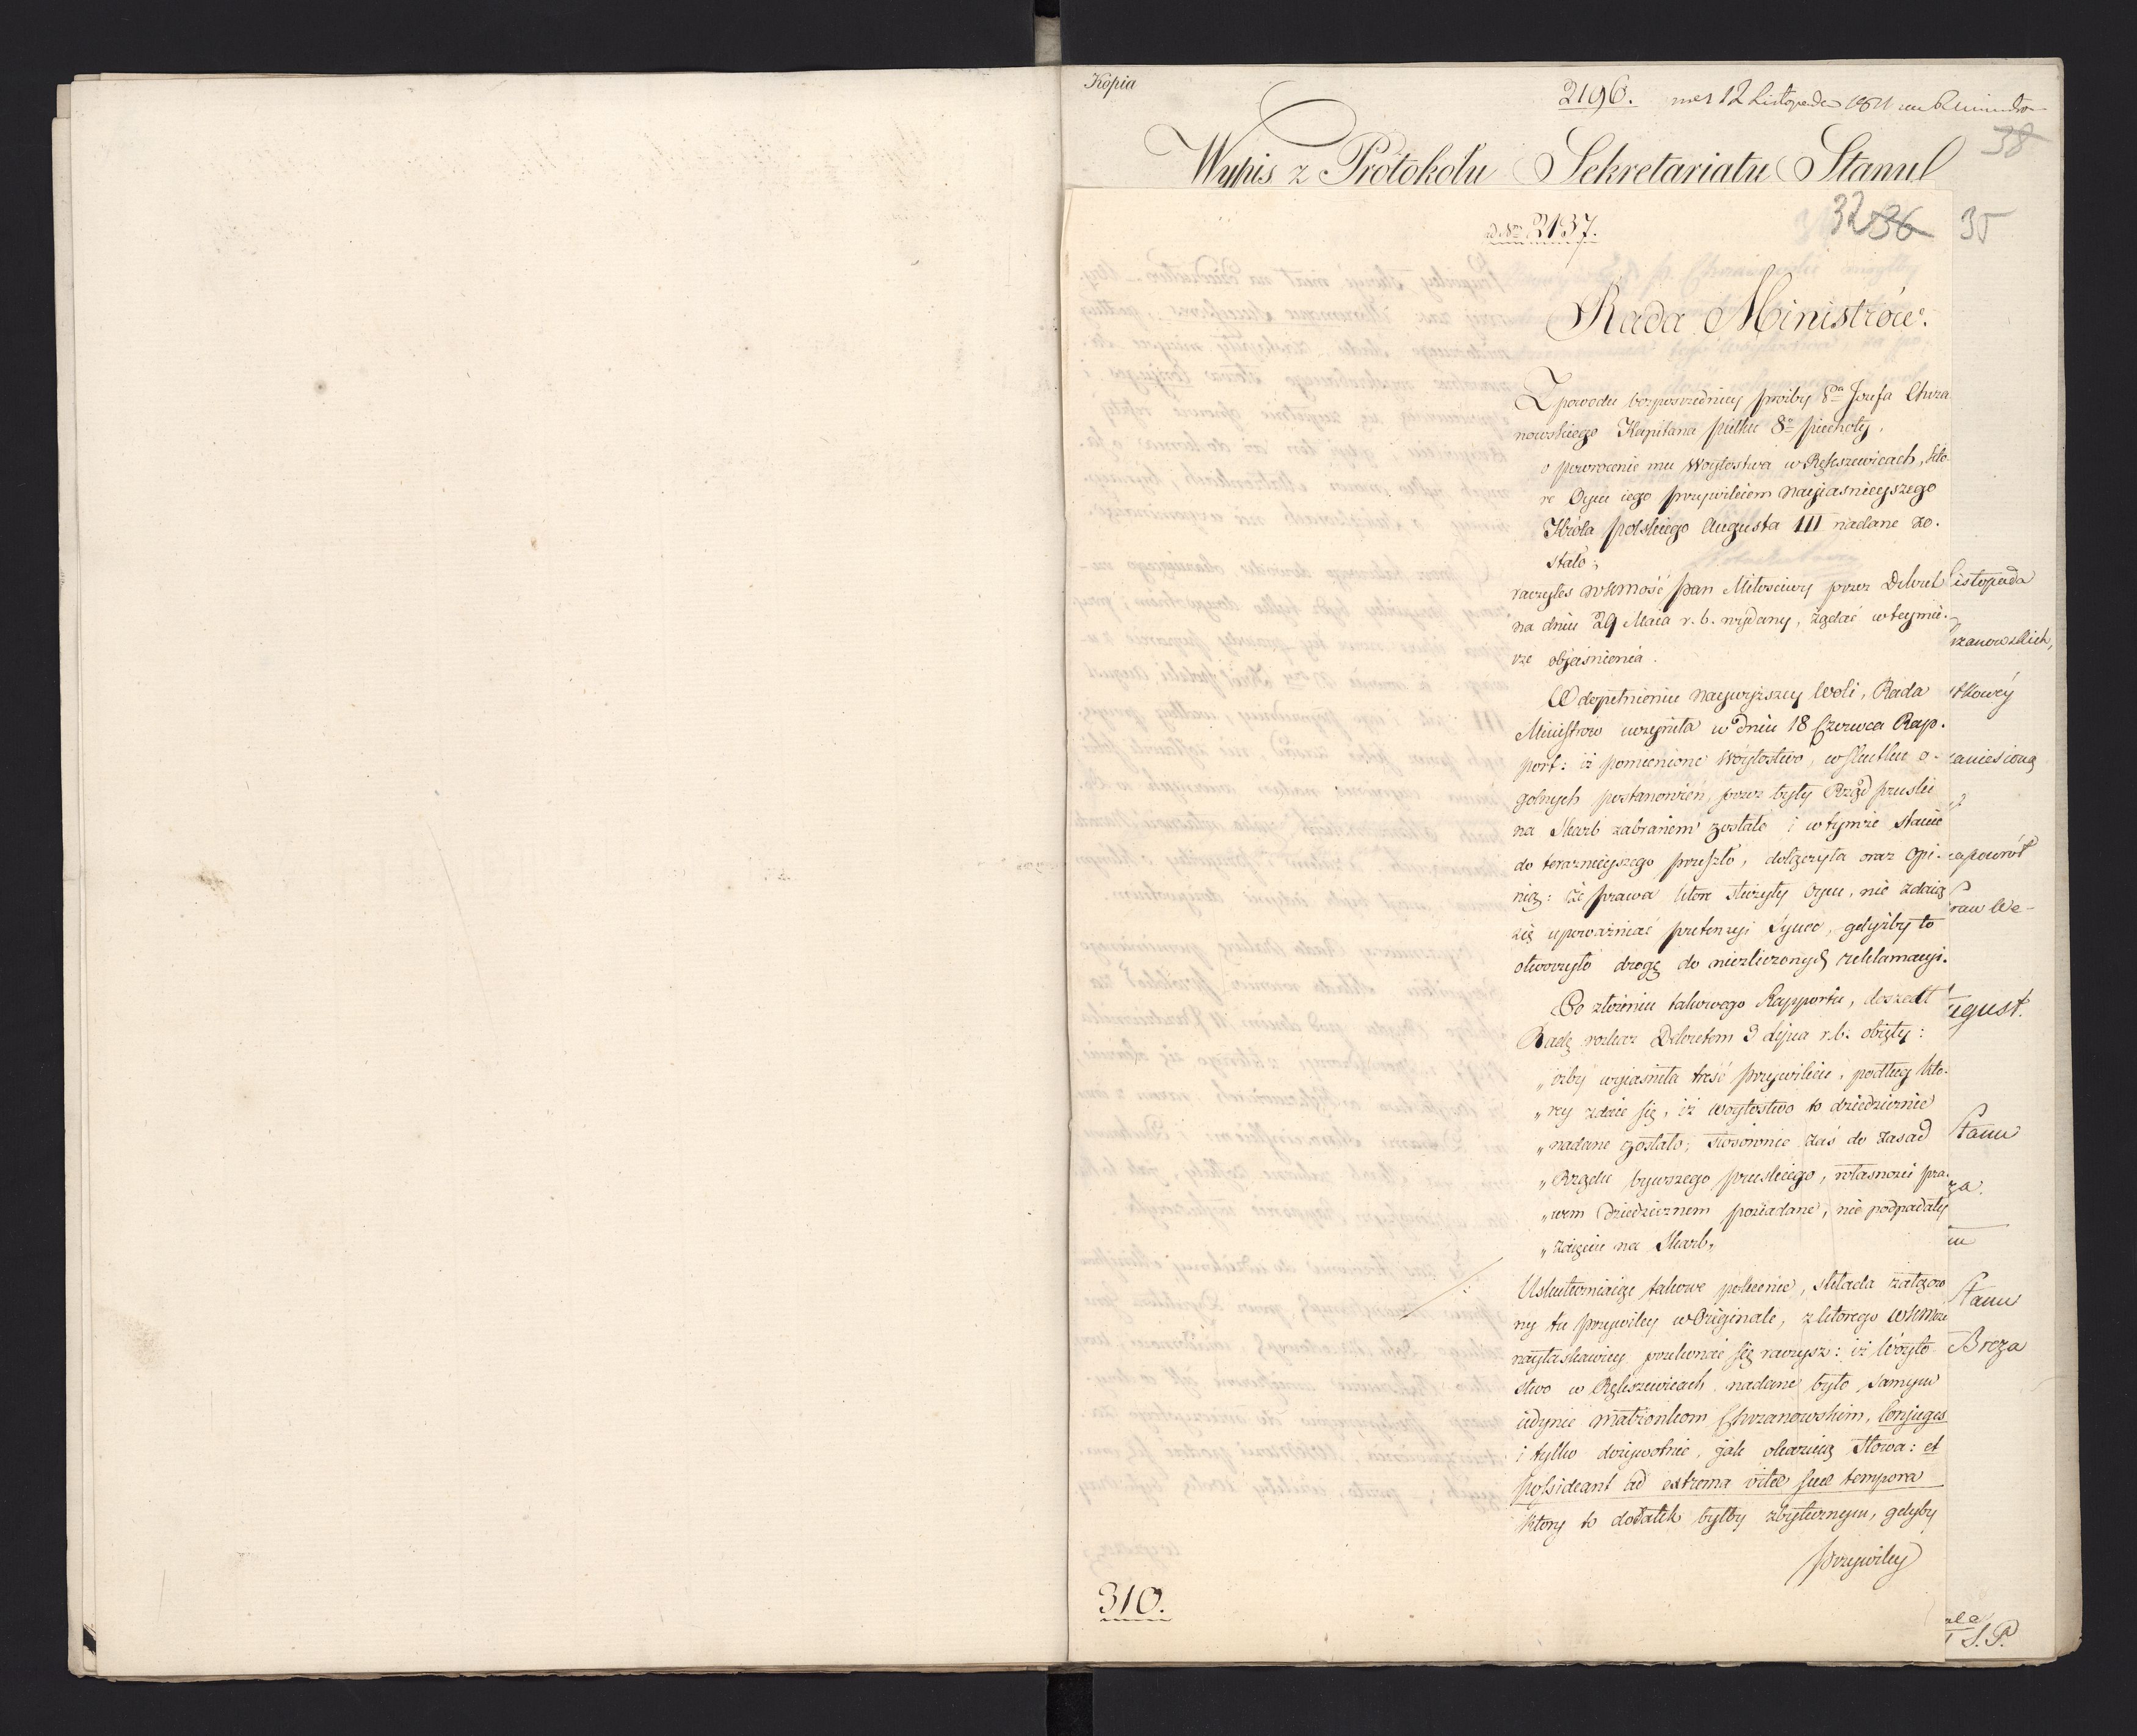 Kopia
2196. 12 Listopada
38
Wypis z Protokołu Sekretariatu Stanu
ad Nrm 2137.
32 36 35
Rada Ministrów.
Z powodu bezposredniey proźby Jozefa Chrza
nowskiego Kapitana pułku 8o piechoty,
o powrocenie mu Woytostwa w Rększewicach, któ-
re Oycu iego przywileiem Nayiasnieyszego
Króla polskiego Augusta III nadane zo-
stało;
raczyłes WKMość Pan Miłosciwy przez Dekret
na dniu 29 Maia r. b. wydany, żądać w teymie-
rze obiaśnienia.
W dopełnieniu Naywyższey Woli, Rada
Ministrow uczyniła w dniu 18 Czerwca Rap-
port: iż pomienione Woytostwo, w skutku o-
golnych postanowień, przez były Rząd pruski
na Skarb zabraniem zostało i w tymże stanie
do teraznieyszego przeszło, dołączyła oraz Opi-
nią: że prawa które służyły Oycu, nie zdaią
się upoważniać pretensyi Synow, gdyżby to
otworzyło drogę do niezliczonych reklamacyi.
Po złożeniu takowego Rapportu, doszedł
Radę rozkaz Dekretem 3 Lipca r. b. obięty:
„ iżby wyiasniła treść przywileiu, podług któ-
„ rey zdaie się, iż woytostwo to dziedzicznie
„ nadane zostało; stosownie zaś do zasad
„ Rządu bywszego pruskiego, własności pra-
„ wem dziedzicznem posiadane, nie podpadały
„ zaięciu na Skarb„
Uskuteczniaiąc takowe polecenie, składa załączo
ny tu przywiley w Originale, z którego WKMość
nayłaskawiey przekonać się raczysz: iż Woyto
stwo w Rększewicach nadane było, samym
iedynie małżonkom Chrzanowskim, Conjuges
i tylko dożywotnie, jak okazuią słowa: et
possideant ad extrema vitæ suæ tempora
który to dodatek byłby zbytecznym, gdyby
przywiley
310.
istopada
rzanowskich,
tkowéy
zaniesioną
napowrót
raw We-
ugust.
Stanu
za.
Stanu
Breza
S. P.